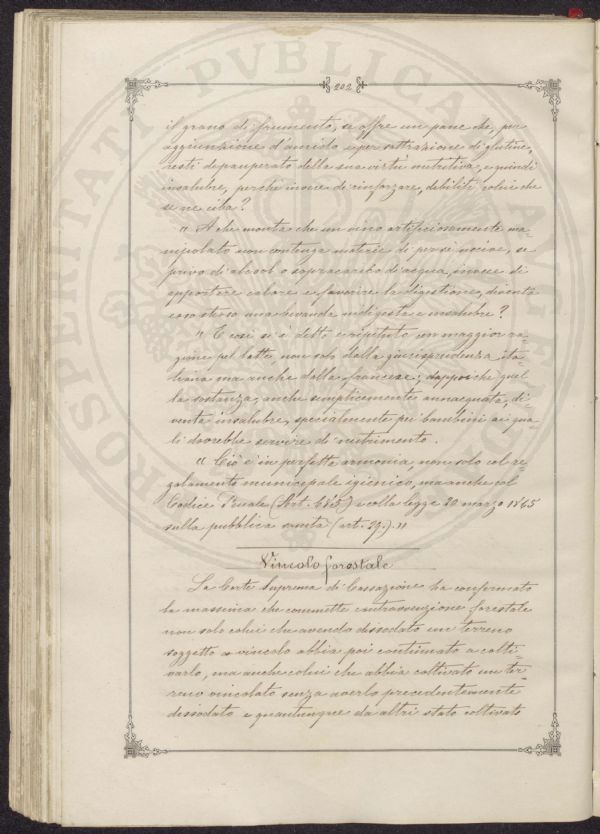 202
il grano di frumento, se offre un pane che, per
aggiunzione d'amido e per sottrazione di glutine,
resti depauperato della sua virtù nutritiva, e quindi
insalubre, perchè invece di rinforzare, debiliti colui che
se ne ciba?
" A che monta che un vino artificiosamente ma-
nipolato non contenga materie di per sè nocive, se
privo di alcool o sopracarico di acqua, invece di
apportare calore e favorire la digestione, diventa
esso stesso una bevanda indigesta e insalubre?
" E così si è detto e ripetuto con maggior ra-
gione pel latte, non solo dalla giurisprudenza ita-
liana ma anche dalla francese; dappoichè quel-
la sostanza, anche semplicemente annacquata, di-
venta insalubre, specialmente pei bambini ai qua-
li dovrebbe servire di nutrimento.
" Ciò è in perfetta armonia, non solo col re-
golamento municipale igienico, ma anche col
Codice Penale (Art. 485) e colla legge 20 marzo 1865
sulla pubblica sanità (art. 29). "
Vincolo forestale
La Corte Suprema di Cassazione ha confermato
la massima che commette contravvenzione forestale
non solo colui che avendo dissodato un terreno
soggetto a vincolo abbia poi continuato a colti-
varlo, ma anche colui che abbia coltivato un ter-
reno vincolato senza averlo precedentemente
dissodato e quantunque da altri stato coltivato
PROSPERITATI PVBLICAE AVGENDAE